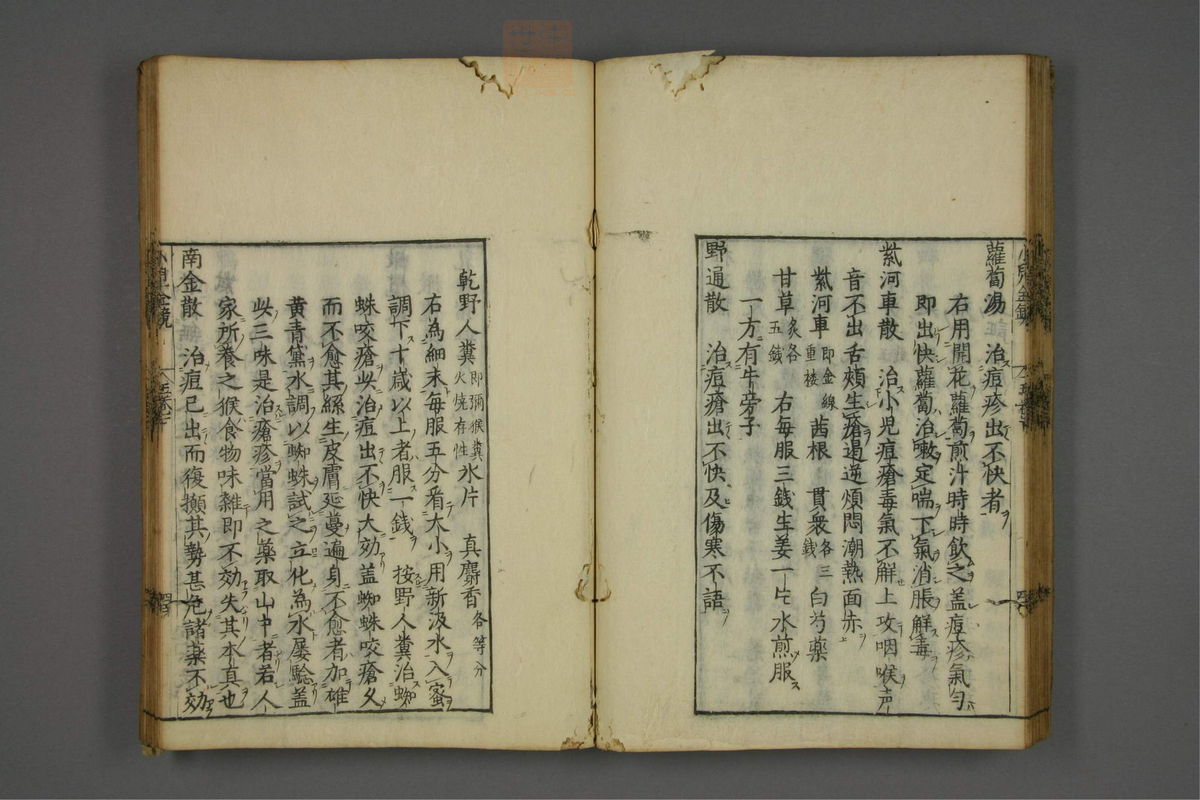 蘿蔔湯　治痘疹出不快者
右用開花蘿蔔煎汁時時飲之盖痘疹氣勻
即出快蘿蔔治嗽定喘下氣消脹解毒
紫河車散　治小児痘瘡毒氣不解上攻咽喉声
音不出舌頰生瘡邊逆煩悶潮熱面赤
紫河車即金線重楼　茜根　貫衆各三錢　白芍藥
甘草炙各五錢　右每服三錢生姜一片水煎服
一方有牛旁子
野通散　治痘瘡出不快及傷寒不語
乾野人糞即獼猴糞火燒存性　氷片　真麝香各等分
右為細末每服五分看大小用新汲水入蜜
調下十歳以上者服一錢　按野人糞治蜘
蛛咬瘡此治痘出不快大効盖蜘蛛咬瘡久
而不愈其絲生皮膚延蔓遍身不愈者加雄
黄青黛水調以蜘蛛試之立化為水屡驗盖
此三味是治瘡疹當用之藥取山中者若人
家所養之猴食物味雜即不効失其本真也
南金散　治痘已出而復擫其勢甚危諸藥不効